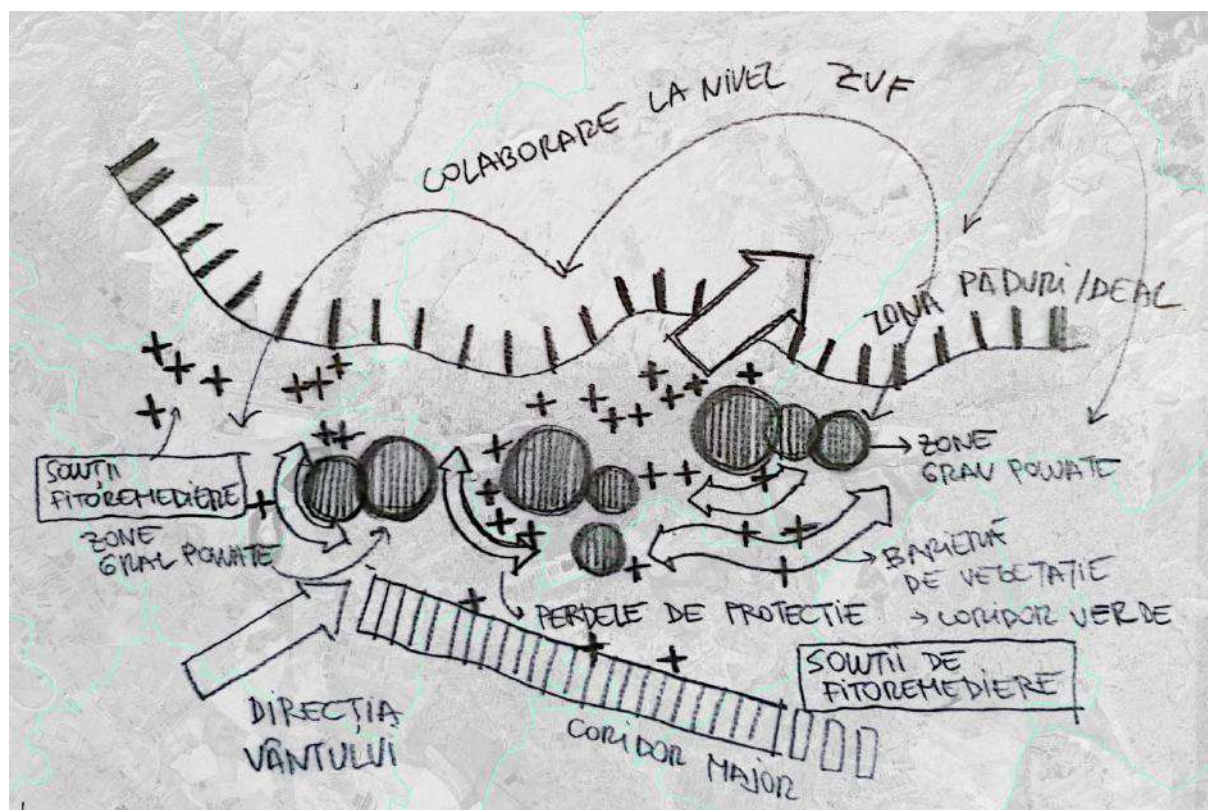 COLABORARE LA NIVEL ZVF
ZONĂ PĂDURI/DEAL
ZONE
GRAV POLUATE
SOLUTII
FITOREMEDIERE
ZONE
GRAV POLUATE
BARIERĂ
DE VEGETAȚIE
→ CORIDOR VERDE
PERDELE DE PROTECTIE
SOLUTII DE
FITOREMEDIERE
DIRECȚIA
VÂNTULUI
CORIDOR MAJOR